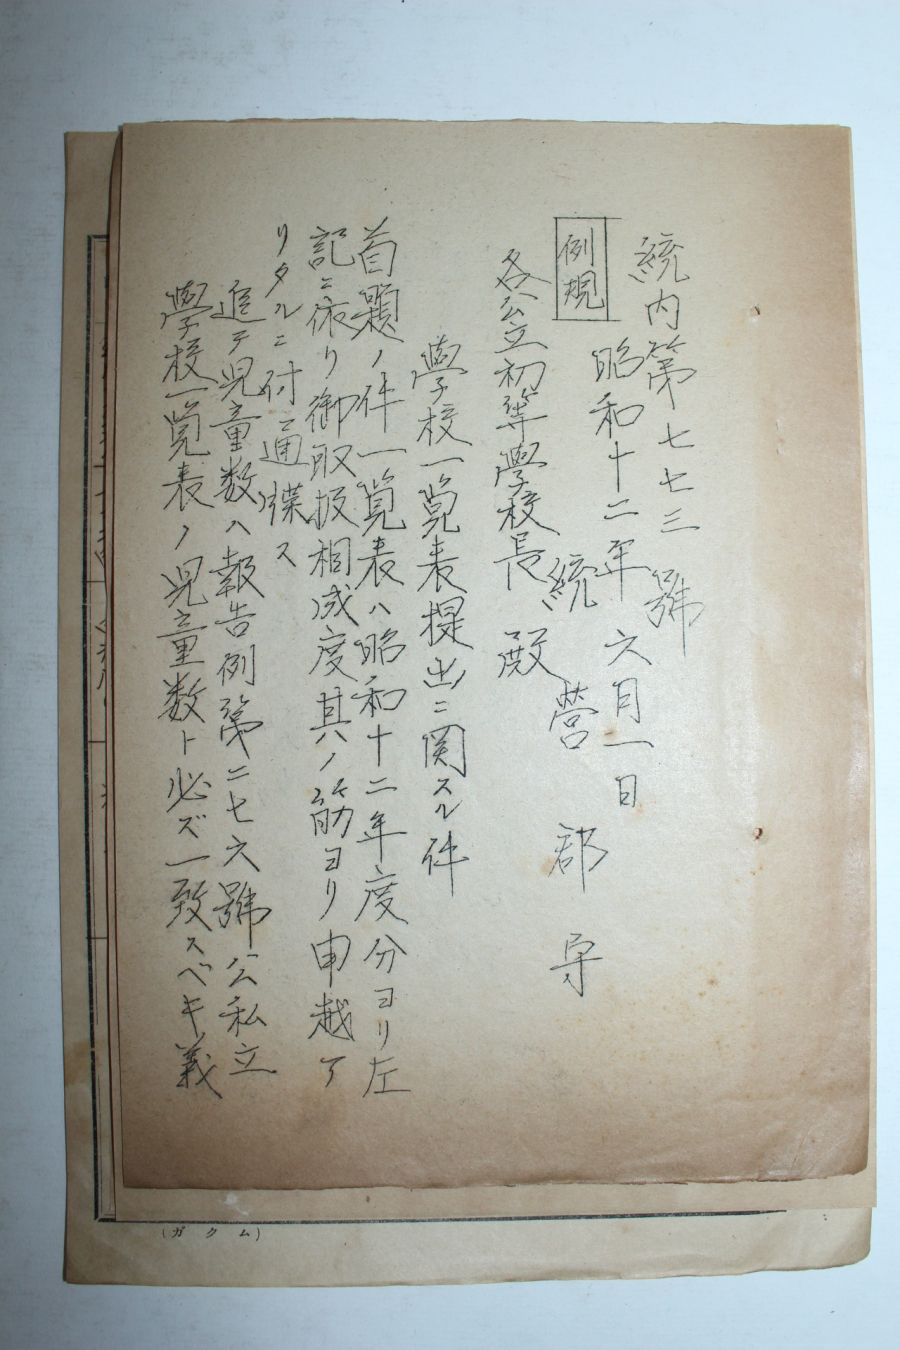 統内第七七三號
昭和十二年六月一日
例規
統營郡守
各公立初等學校長殿
學校一覽表提出ニ関スル件
首題ノ件一覽表ハ昭和十二年度分ヨリ左
記ニ依リ御取扱相成度其ノ筋ヨリ申越ア
リタルニ付通牒ス
追テ児童数ハ報告例第二七六號公私立
學校一覽表ノ児童数ト必ズ一致スベキ義
(ガクム)